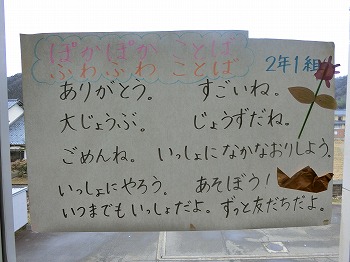 ぽかぽか ことば
ふわふわ ことば
2年1組
ありがとう。 すごいね。
大じょうぶ。 じょうずだね。
ごめんね。 いっしょになかなおりしよう。
いっしょにやろう。 あそぼう!
いつまでもいっしょだよ。 ずっと友だちだよ。